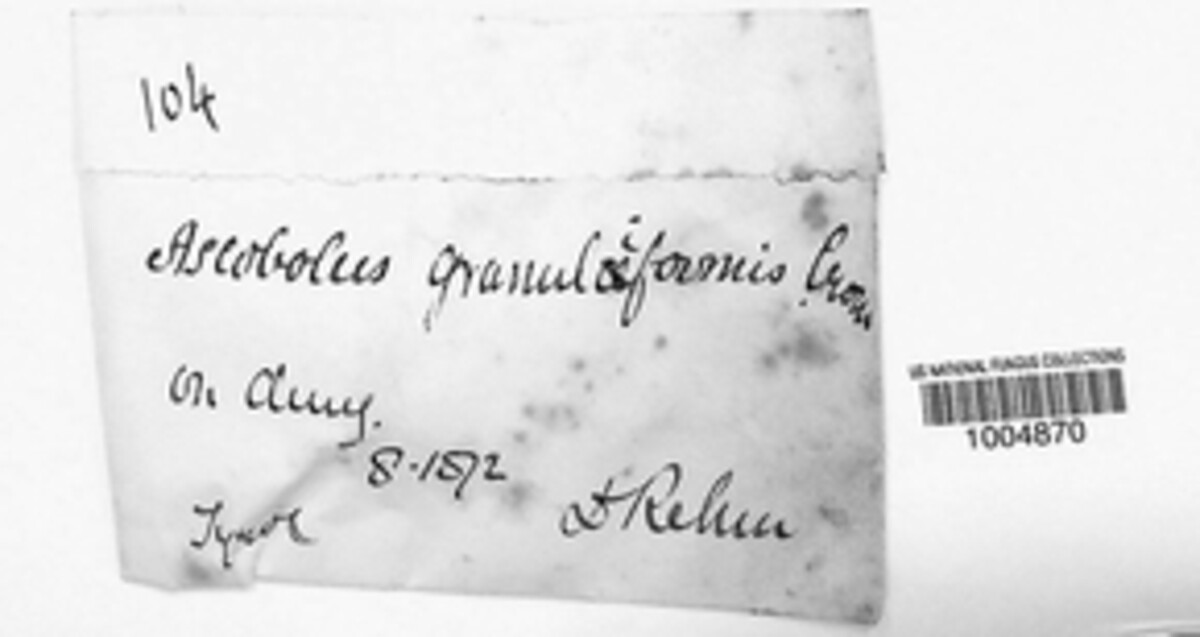 104
Ascobolus granuliformis Crou
on dung.
8-1872
Tyrol
Dr Rehm
US NATIONAL FUNGUS COLLECTIONS
1004870